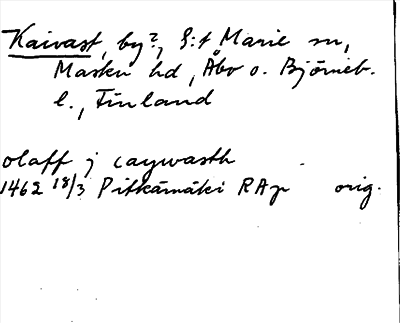 Kaivast, by?, S:t Marie sn,
Masku hd, Åbo o. Björneb.
l., Finland
olaff j caywasth
1462 18/3 Pitkämäki RAp orig.